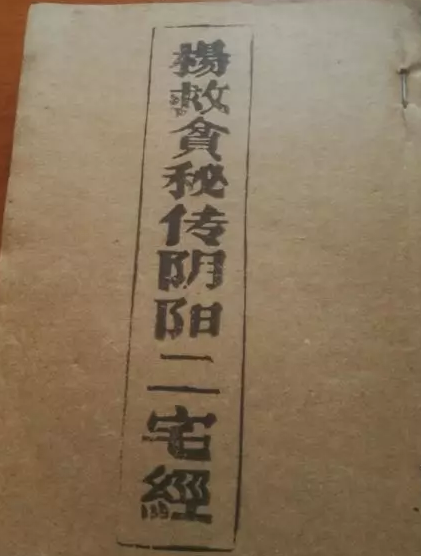 楊救貧秘传阴阳二宅經